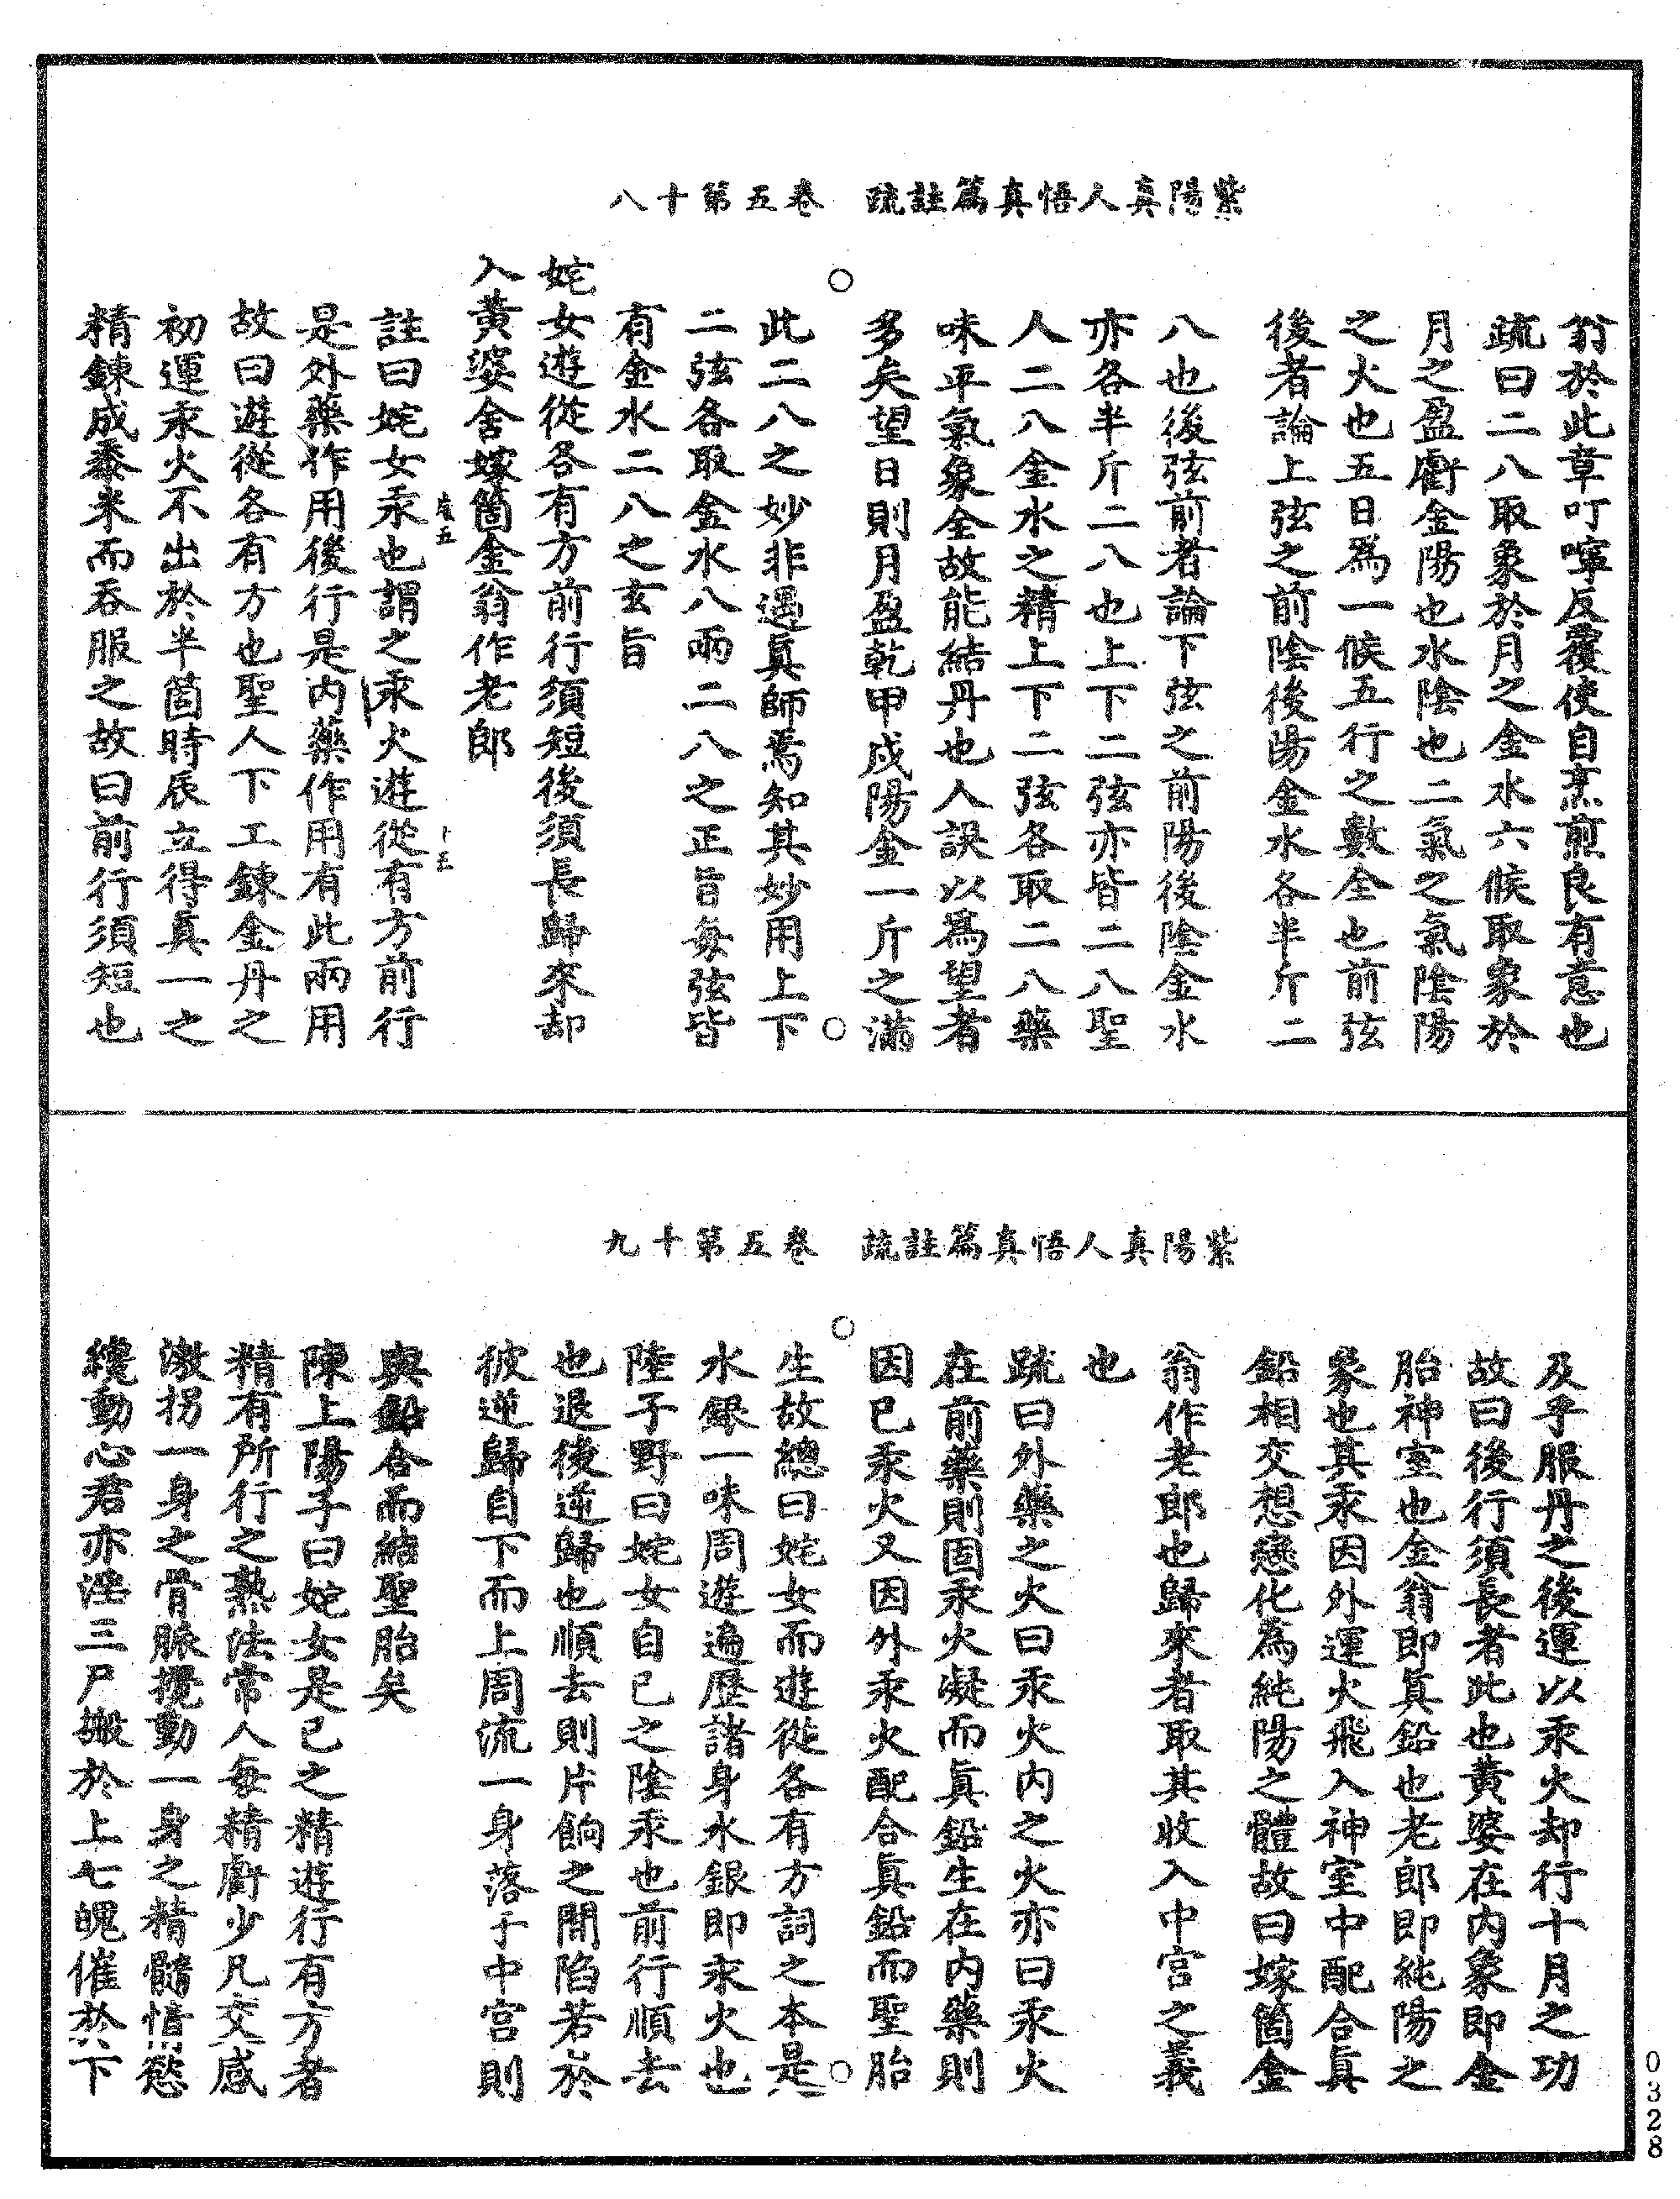 紫陽真人悟真篇註疏　卷五第十八
翁於此章叮嚀反覆使自烹煎良有意也
疏曰二八取象於月之金水六候取象於
月之盈虧金陽也水陰也二氣之氣陰陽
之火也五日爲一候五行之數全也前弦
後者論上弦之前陰後陽金水各半斤二
八也後弦前者論下弦之前陽後陰金水
亦各半斤二八也上下二弦亦皆二八聖
人二八金水之精上下二弦各取二八藥
味平氣象全故能結丹也人誤以爲望者
多矣望日則月盈乾甲成陽金一斤之滿
此二八之妙非遇眞師焉知其妙用上下
二弦各取金水八兩二八之正旨每弦皆
有金水二八之玄旨
姹女遊從各有方前行須短後須長歸來却
入黃婆舍嫁箇金翁作老郎
卷五　十五
註曰姹女汞也謂之汞火遊從有方前行
是外藥作用後行是内藥作用有此兩用
故曰遊從各有方也聖人下工鍊金丹之
初運汞火不出於半箇時辰立得真一之
精鍊成黍米而吞服之故曰前行須短也
紫陽真人悟真篇註疏　卷五第十九
及乎服丹之後運以汞火却行十月之功
故曰後行須長者此也黃婆在内象即金
胎神室也金翁即眞鉛也老郎即純陽之
象也其汞因外運火飛入神室中配合眞
鉛相交想戀化為純陽之體故曰嫁箇金
翁作老郎也歸來者取其收入中宮之義
也
疏曰外藥之火曰汞火内之火亦曰汞火
在前藥則固汞火凝而眞鉛生在内藥則
因巳汞火又因外汞火配合眞鉛而聖胎
生故總曰姹女而遊從各有方詞之本是
水銀一味周遊遍歷諸身水銀即汞火也
陸子野曰姹女自巳之陰汞也前行順去
也退後逆歸也順去則片餉之間陷若於
彼逆歸自下而上周流一身落于中宮則
與鉛合而結聖胎矣
陳上陽子曰姹女是巳之精遊行有方者
精有所行之熟法常人每精虧少凡交感
激拐一身之骨脈攪動一身之精髓情慾
纔動心君亦淫三尸搬於上七魄催於下
0328